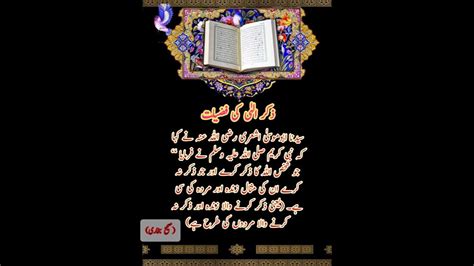 ذکر الٰہی کی فضیلت
سیدنا ابوموسیٰ اشعری رضی اللہ عنہ نے کہا
کہ نبی کریم صلی اللہ علیہ وسلم نے فرمایا “
جو شخص اللہ کا ذکر کرے اور جو ذکر نہ
کرے ان کی مثال زندہ اور مردہ کی سی
ہے۔ (یعنی ذکر کرنے والا زندہ اور ذکر نہ
کرنے والا مردوں کی طرح ہے)
(صحیح بخاری)